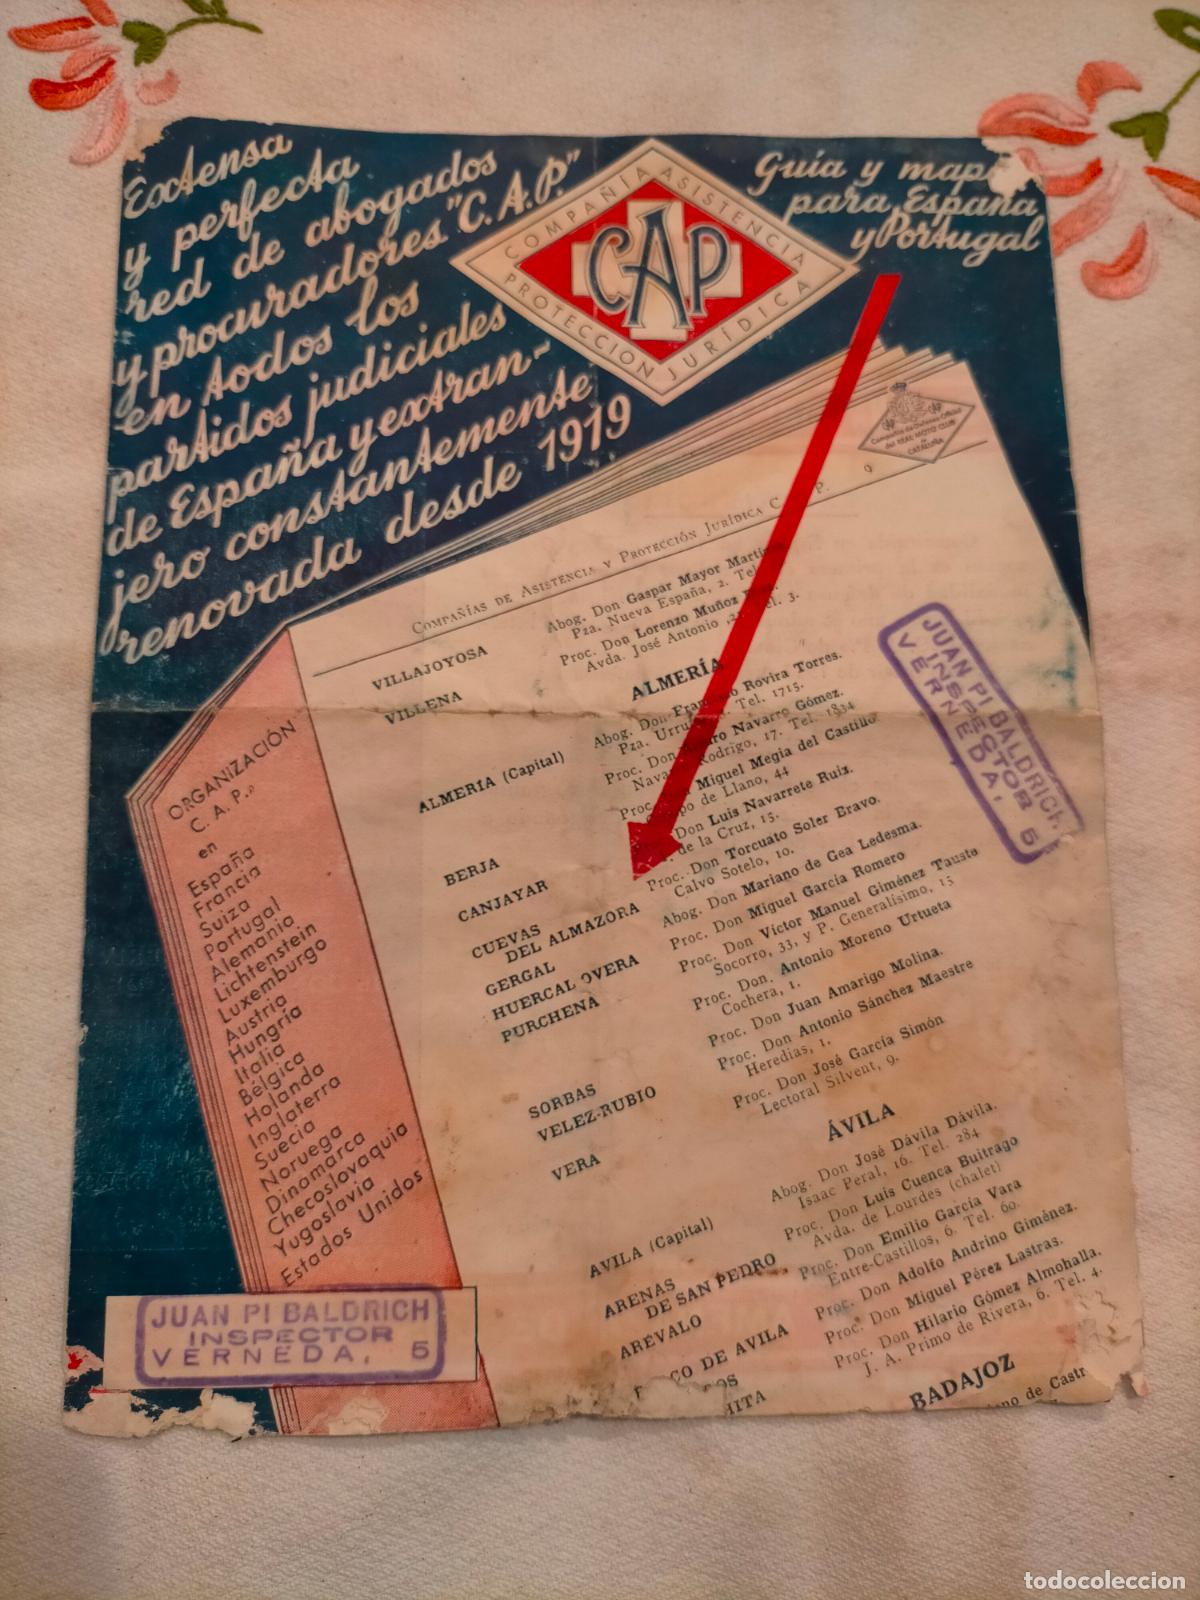 Extensa
y perfecta
red de abogados
y procuradores "C.A.P."
en todos los
partidos judiciales
de España y extran-
jero constantemente
renovada desde 1919
COMPAÑIA ASISTENCIA
CAP
PROTECCION JURÍDICA
Guía y mapa
para España
y Portugal
CAP
Compañía de Defensa Oficial
del REAL MOTO CLUB
de
CATALUÑA
COMPAÑÍAS DE ASISTENCIA Y PROTECCIÓN JURÍDICA C. P. 9
VILLAJOYOSA
Abog. Don Gaspar Mayor
Pza. Nueva España, 2. Tel
VILLENA
Proc. Don Lorenzo Muñoz
Avda. José Antonio, Tel. 3.
ALMERÍA
ALMERIA (Capital)
Abog. Don Rovira Torres.
Pza. Tel. 1715.
Proc. Don Navarro Gómez.
Rodrigo, 17. Tel. 1834
Miguel Megia del Castillo
de Llano, 44
BERJA
Don Luis Navarrete Ruiz.
de la Cruz, 15.
CANJAYAR
Proc. Don Torcuato Soler Bravo.
Calvo Sotelo, 10.
CUEVAS
DEL ALMAZORA
Abog. Don Mariano de Gea Ledesma.
GERGAL
Proc. Don Miguel García Romero
HUERCAL OVERA
Proc. Don Víctor Manuel Giménez Tauste
Socorro, 33, y P. Generalísimo, 15
PURCHENA
Proc. Don. Antonio Moreno Urtueta
Cochera, 1.
SORBAS
Proc. Don Juan Amarigo Molina.
VELEZ-RUBIO
Proc. Don Antonio Sánchez Maestre
Heredias, 1.
VERA
Proc. Don José García Simón
Lectoral Silvent, 9.
ÁVILA
AVILA (Capital)
Abog. Don José Dávila Dávila.
Isaac Peral, 16. Tel. 284
Proc. Don Luis Cuenca Buitrago
Avda. de Lourdes (chalet)
ARENAS
DE SAN PEDRO
Proc. Don Emilio García Vara
Entre-Castillos, 6. Tel. 60.
ARÉVALO
Proc. Don Adolfo Andrino Giménez.
CO DE AVILA
Proc. Don Miguel Pérez Lastras.
OS
Proc. Don Hilario Gómez Almohalla.
J. A. Primo de Rivera, 6. Tel. 4.
HITA
BADAJOZ
ORGANIZACIÓN
C. A. P.
en
España
Francia
Suiza
Portugal
Alemania
Lichtenstein
Luxemburgo
Austria
Hungría
Italia
Bélgica
Holanda
Inglaterra
Suecia
Noruega
Dinamarca
Checoslovaquia
Yugoslavia
Estados Unidos
JUAN PI BALDRICH
INSPECTOR
VERNEDA, 5
JUAN PI BALDRICH
INSPECTOR
VERNEDA, 5
todocoleccion